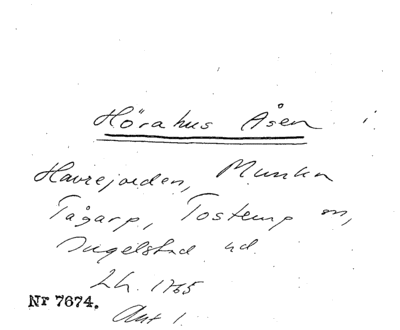 Hörahus Åsen i
Havrejorden, Munka
Tågarp, Tosterup sn,
Ingelstad hd.
Lh. 1765
Akt 1.
Nr 7674.